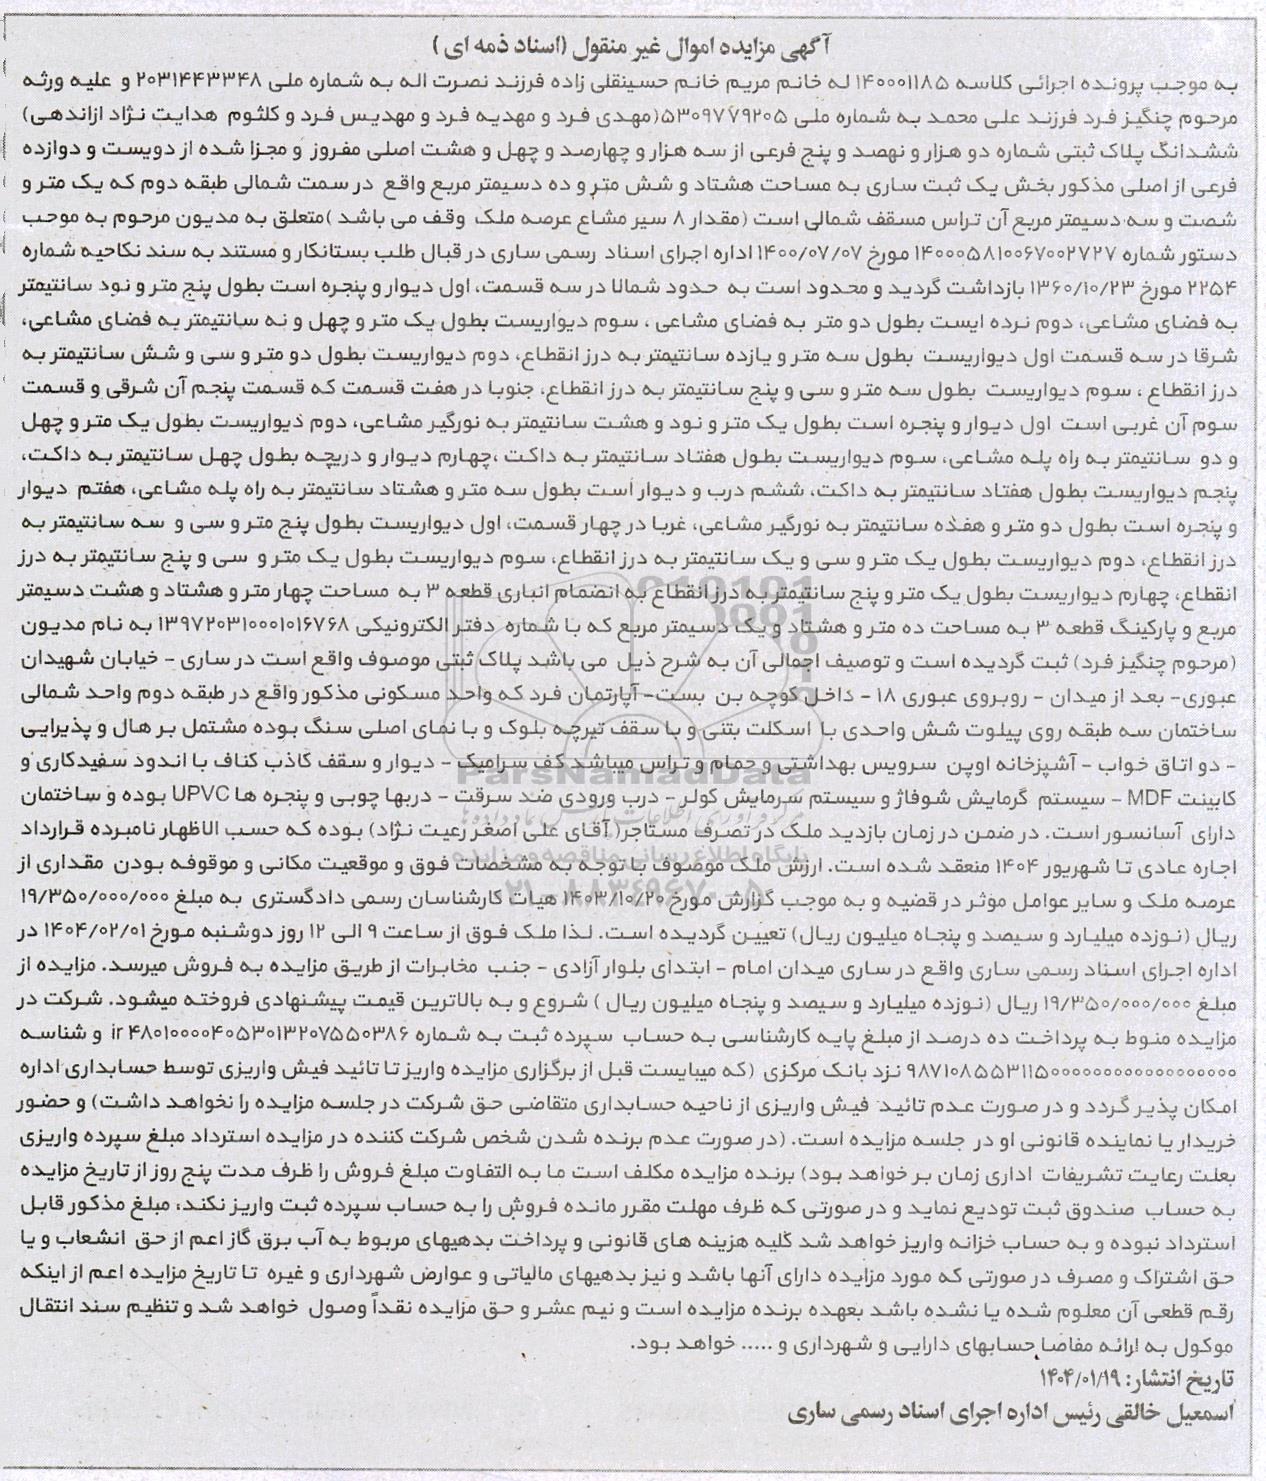 آگهی مزایده اموال غیر منقول (اسناد ذمه ای )
به موجب پرونده اجرائی کلاسه ۱۴۰۰۰۱۱۸۵ له خانم مریم خانم حسینقلی زاده فرزند نصرت اله به شماره ملی ۲۰۳۱۴۴۳۳۴۸ و علیه ورثه
مرحوم چنگیز فرد فرزند علی محمد به شماره ملی ۵۳۰۹۷۷۹۲۰۵(مهدی فرد و مهدیه فرد و مهدیس فرد و کلثوم هدایت نژاد ازاندهی)
ششدانگ پلاک ثبتی شماره دو هزار و نهصد و پنج فرعی از سه هزار و چهارصد و چهل و هشت اصلی مفروز و مجزا شده از دویست و دوازده
فرعی از اصلی مذکور بخش یک ثبت ساری به مساحت هشتاد و شش متر و ده دسیمتر مربع واقع در سمت شمالی طبقه دوم که یک متر و
شصت و سه دسیمتر مربع آن تراس مسقف شمالی است (مقدار ۸ سیر مشاع عرصه ملک وقف می باشد )متعلق به مدیون مرحوم به موجب
دستور شماره ۱۴۰۰۰۵۸۱۰۰۶۷۰۰۲۷۲۷ مورخ ۱۴۰۰/۰۷/۰۷ اداره اجرای اسناد رسمی ساری در قبال طلب بستانکار و مستند به سند نکاحیه شماره
۲۲۵۴ مورخ ۱۳۶۰/۱۰/۲۳ بازداشت گردید و محدود است به حدود شمالا در سه قسمت، اول دیوار و پنجره است بطول پنج متر و نود سانتیمتر
به فضای مشاعی، دوم نرده ایست بطول دو متر به فضای مشاعی ، سوم دیواریست بطول یک متر و چهل و نه سانتیمتر به فضای مشاعی،
شرقا در سه قسمت اول دیواریست بطول سه متر و یازده سانتیمتر به درز انقطاع، دوم دیواریست بطول دو متر و سی و شش سانتیمتر به
درز انقطاع ، سوم دیواریست بطول سه متر و سی و پنج سانتیمتر به درز انقطاع، جنوبا در هفت قسمت که قسمت پنجم آن شرقی و قسمت
سوم آن غربی است اول دیوار و پنجره است بطول یک متر و نود و هشت سانتیمتر به نورگیر مشاعی، دوم دیواریست بطول یک متر و چهل
و دو سانتیمتر به راه پله مشاعی، سوم دیواریست بطول هفتاد سانتیمتر به داکت ،چهارم دیوار و دریچه بطول چهل سانتیمتر به داکت،
پنجم دیواریست بطول هفتاد سانتیمتر به داکت، ششم درب و دیوار است بطول سه متر و هشتاد سانتیمتر به راه پله مشاعی، هفتم دیوار
و پنجره است بطول دو متر و هفده سانتیمتر به نورگیر مشاعی، غربا در چهار قسمت، اول دیواریست بطول پنج متر و سی و سه سانتیمتر به
درز انقطاع، دوم دیواریست بطول یک متر و سی و یک سانتیمتر به درز انقطاع، سوم دیواریست بطول یک متر و سی و پنج سانتیمتر به درز
انقطاع، چهارم دیواریست بطول یک متر و پنج سانتیمتر به درز انقطاع به انضمام انباری قطعه ۳ به مساحت چهار متر و هشتاد و هشت دسیمتر
مربع و پارکینگ قطعه ۳ به مساحت ده متر و هشتاد و یک دسیمتر مربع که با شماره دفتر الکترونیکی ۱۳۹۷۲۰۳۱۰۰۰۱۰۱۶۷۶۸ به نام مدیون
(مرحوم چنگیز فرد) ثبت گردیده است و توصیف اجمالی آن به شرح ذیل می باشد پلاک ثبتی موصوف واقع است در ساری – خیابان شهیدان
عبوری– بعد از میدان – روبروی عبوری ۱۸ – داخل کوچه بن بست– آپارتمان فرد که واحد مسکونی مذکور واقع در طبقه دوم واحد شمالی
ساختمان سه طبقه روی پیلوت شش واحدی با اسکلت بتنی و با سقف تیرچه بلوک و با نمای اصلی سنگ بوده مشتمل بر هال و پذیرایی
– دو اتاق خواب – آشپزخانه اوپن سرویس بهداشتی و حمام و تراس میباشد کف سرامیک – دیوار و سقف کاذب کناف با اندود سفیدکاری و
کابینت MDF – سیستم گرمایش شوفاژ و سیستم سرمایش کولر – درب ورودی ضد سرقت – دربها چوبی و پنجره ها UPVC بوده و ساختمان
دارای آسانسور است. در ضمن در زمان بازدید ملک در تصرف مستاجر( آقای علی اصغر رعیت نژاد) بوده که حسب الاظهار نامبرده قرارداد
اجاره عادی تا شهریور ۱۴۰۴ منعقد شده است. ارزش ملک موصوف با توجه به مشخصات فوق و موقعیت مکانی و موقوفه بودن مقداری از
عرصه ملک و سایر عوامل موثر در قضیه و به موجب گزارش مورخ ۱۴۰۳/۱۰/۲۰ هیات کارشناسان رسمی دادگستری به مبلغ ۱۹/۳۵۰/۰۰۰/۰۰۰
ریال (نوزده میلیارد و سیصد و پنجاه میلیون ریال) تعیین گردیده است. لذا ملک فوق از ساعت ۹ الی ۱۲ روز دوشنبه مورخ ۱۴۰۴/۰۲/۰۱ در
اداره اجرای اسناد رسمی ساری واقع در ساری میدان امام – ابتدای بلوار آزادی – جنب مخابرات از طریق مزایده به فروش میرسد. مزایده از
مبلغ ۱۹/۳۵۰/۰۰۰/۰۰۰ ریال (نوزده میلیارد و سیصد و پنجاه میلیون ریال ) شروع و به بالاترین قیمت پیشنهادی فروخته میشود. شرکت در
مزایده منوط به پرداخت ده درصد از مبلغ پایه کارشناسی به حساب سپرده ثبت به شماره ir ۴۸۰۱۰۰۰۰۴۰۵۳۰۱۳۲۰۷۵۵۰۳۸۶ و شناسه
۹۸۷۱۰۸۵۵۳۱۱۵۰۰۰۰۰۰۰۰۰۰۰۰۰۰۰۰۰۰ نزد بانک مرکزی (که میبایست قبل از برگزاری مزایده واریز تا تائید فیش واریزی توسط حسابداری اداره
امکان پذیر گردد و در صورت عدم تائید فیش واریزی از ناحیه حسابداری متقاضی حق شرکت در جلسه مزایده را نخواهد داشت) و حضور
خریدار یا نماینده قانونی او در جلسه مزایده است. (در صورت عدم برنده شدن شخص شرکت کننده در مزایده استرداد مبلغ سپرده واریزی
بعلت رعایت تشریفات اداری زمان بر خواهد بود) برنده مزایده مکلف است ما به التفاوت مبلغ فروش را ظرف مدت پنج روز از تاریخ مزایده
به حساب صندوق ثبت تودیع نماید و در صورتی که ظرف مهلت مقرر مانده فروش را به حساب سپرده ثبت واریز نکند، مبلغ مذکور قابل
استرداد نبوده و به حساب خزانه واریز خواهد شد کلیه هزینه های قانونی و پرداخت بدهیهای مربوط به آب برق گاز اعم از حق انشعاب و یا
حق اشتراک و مصرف در صورتی که مورد مزایده دارای آنها باشد و نیز بدهیهای مالیاتی و عوارض شهرداری و غیره تا تاریخ مزایده اعم از اینکه
رقم قطعی آن معلوم شده یا نشده باشد بعهده برنده مزایده است و نیم عشر و حق مزایده نقداً وصول خواهد شد و تنظیم سند انتقال
موکول به ارائه مفاصا حسابهای دارایی و شهرداری و ..... خواهد بود.
تاریخ انتشار: ۱۴۰۴/۰۱/۱۹
اسمعیل خالقی رئیس اداره اجرای اسناد رسمی ساری
ParsNamadData
پایگاه اطلاع رسانی مناقصه و مزایده
۰۲۱-۸۸۳۴۹۶۷۰-۵